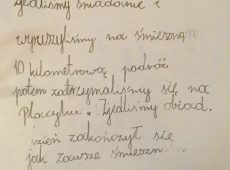 zjedliśmy śniadanie i
wyruszyliśmy na śmieszną
10 kilometrową podróż
potem zatrzymaliśmy się na
Placyku. Zjedliśmy obiad.
dzień zakończył się
jak zawsze śmieszn